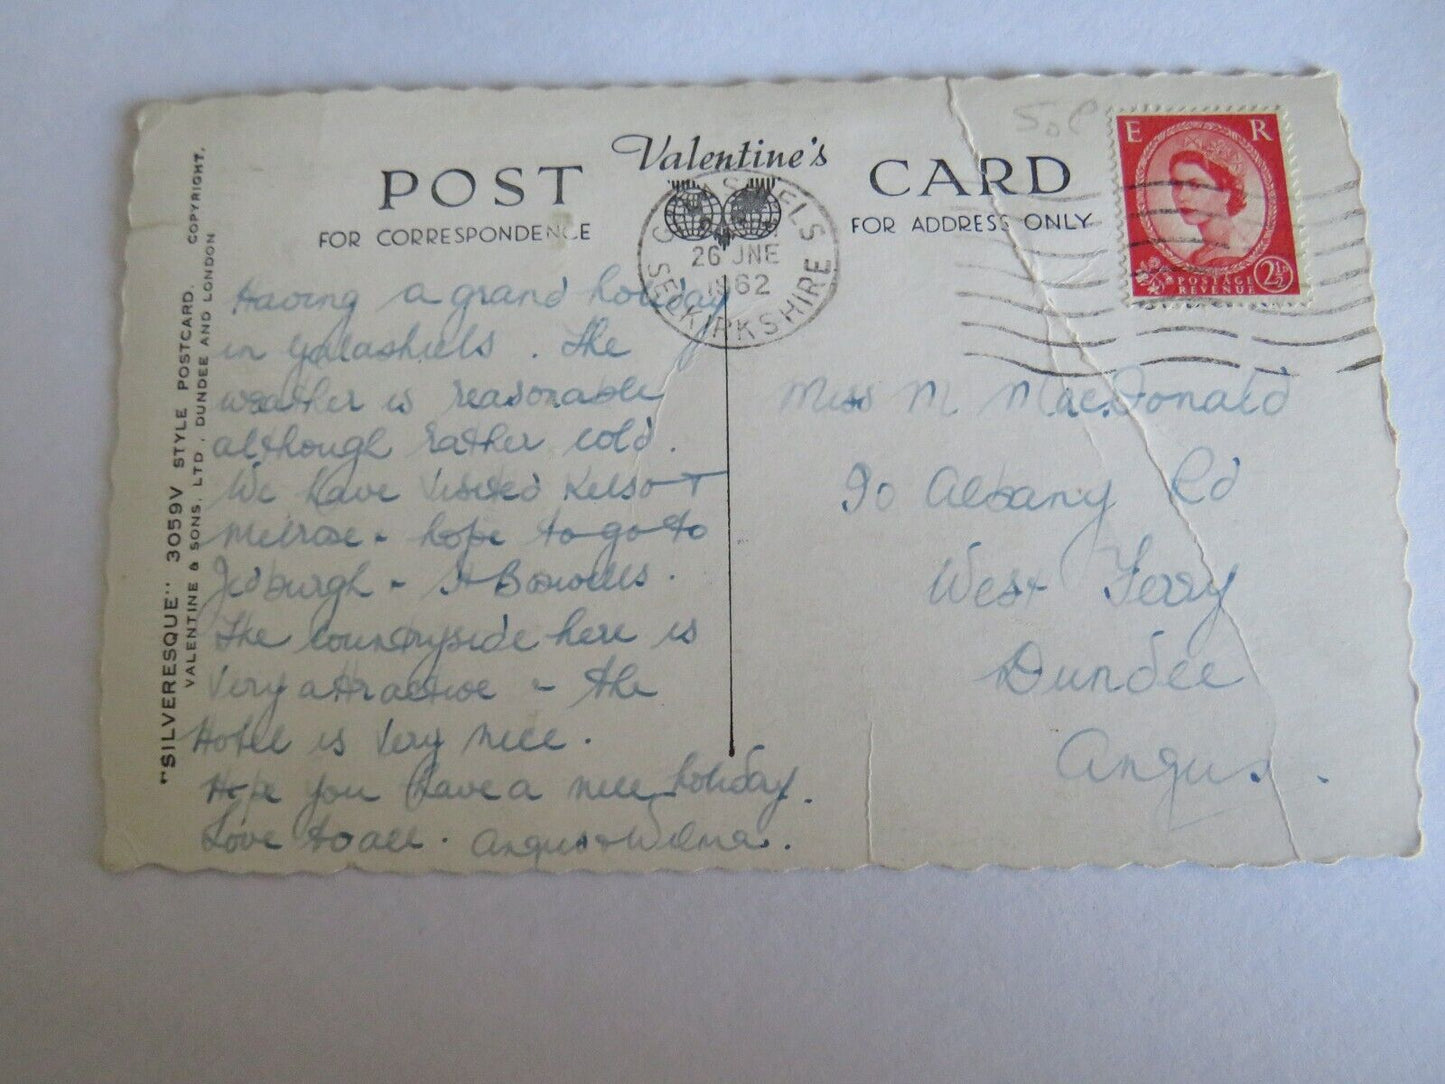 Valentine's
POST CARD
FOR CORRESPONDENCE
FOR ADDRESS ONLY
GALASHIELS
26 JNE
1962
SELKIRKSHIRE
50p
E R
POSTAGE
REVENUE
2½D
"SILVERESQUE" 3059V STYLE POSTCARD. COPYRIGHT.
VALENTINE & SONS, LTD., DUNDEE AND LONDON
Having a grand holiday
in Galashiels. The
weather is reasonable
although rather cold.
We have visited Kelso +
Melrose - hope to go to
Jedburgh - St Boswells.
The countryside here is
very attractive - the
Hotel is very nice.
Hope you have a nice holiday.
Love to all. Angus + Wilma.
Miss M. MacDonald
90 Albany Rd
West Ferry
Dundee
Angus.